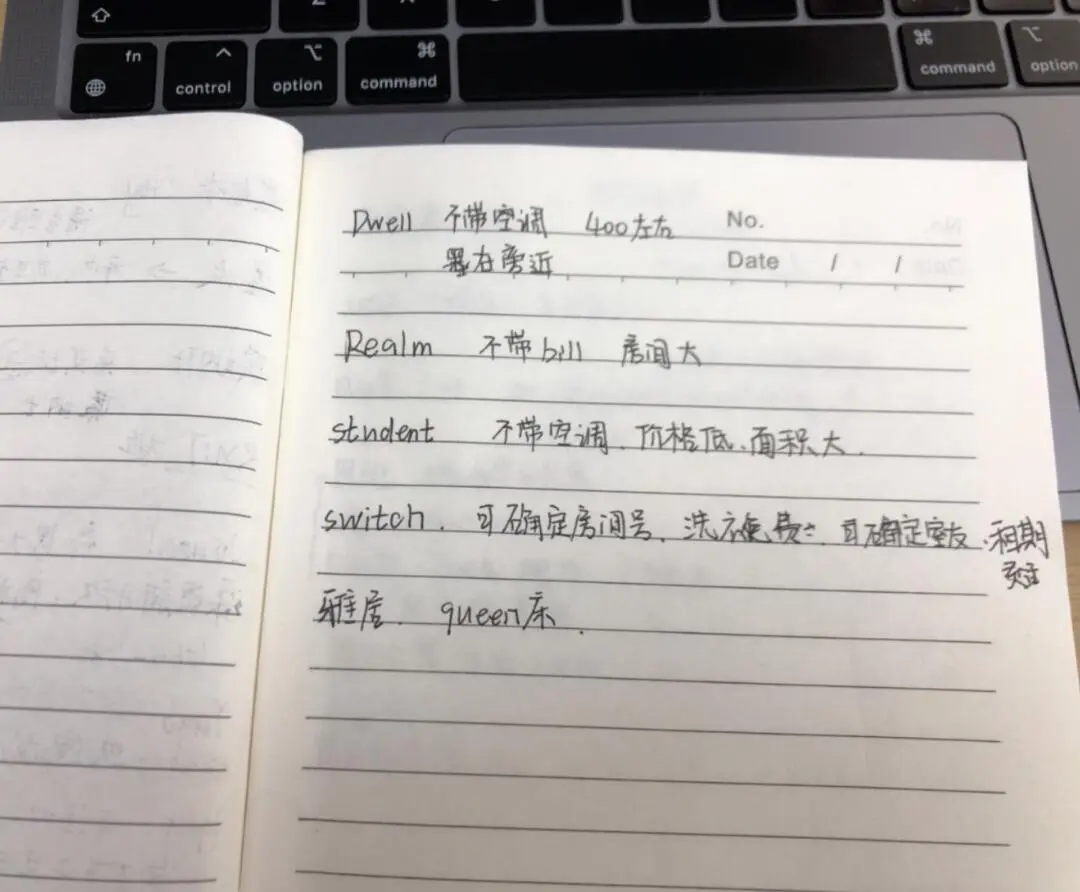 fn
control
⌥
option
⌘
command
⌘
command
⌥
option
Dwell 不带空调 400左右 No.
在旁近 Date / /
Realm 不带bill 房间大
student 不带空调、价格低、面积大.
switch. 可确定房间号、洗衣免费、可确定室友、租期
灵活
雅居. queen床.